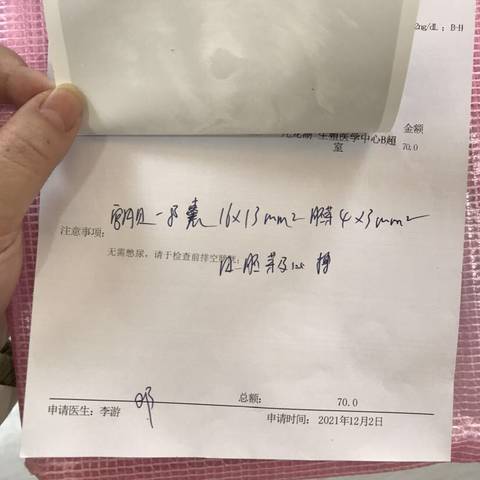 2ng/dL；B-H
金额
生殖医学中心B超
室 70.0
宫内见一孕囊 16×13mm² 胚芽4×3mm²
注意事项：
无需憋尿，请于检查前排空膀胱；
申请医生：李游 总额： 70.0
申请时间： 2021年12月2日